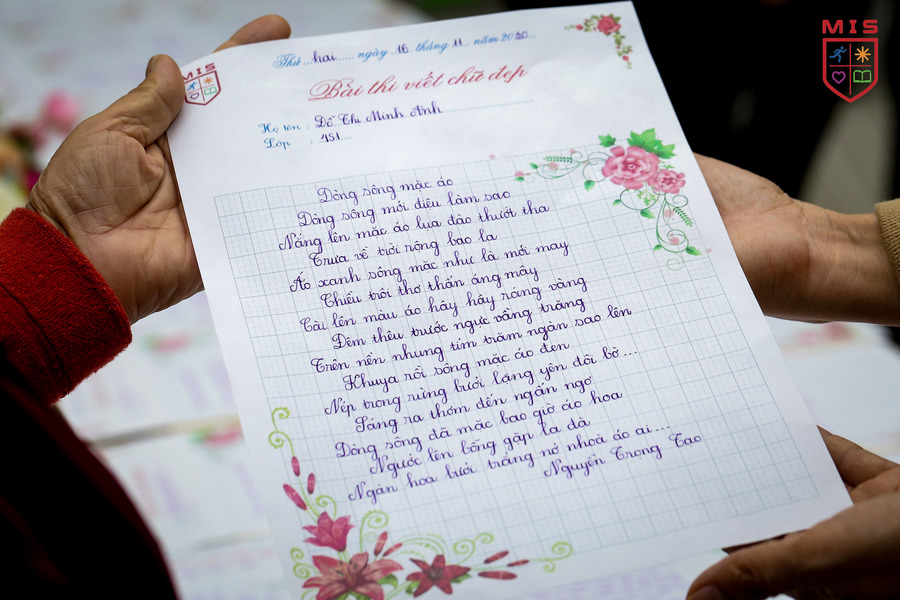 MIS
MIS
Thứ ...hai...... ngày .16. tháng .11.. năm 2020...
Bài thi viết chữ đẹp
Họ tên : Đỗ Thị Minh Anh
Lớp : .4S1....
Dòng sông mặc áo
Dòng sông mới điệu làm sao
Nắng lên mặc áo lụa đào thướt tha
Trưa về trời rộng bao la
Áo xanh sông mặc như là mới may
Chiều trôi thơ thẩn áng mây
Cài lên màu áo hây hây ráng vàng
Đêm thêu trước ngực vầng trăng
Trên nền nhung tím trăm ngàn sao lên
Khuya rồi sông mặc áo đen
Nép trong rừng bưởi lặng yên đôi bờ...
Sáng ra thơm đến ngẩn ngơ
Dòng sông đã mặc bao giờ áo hoa
Ngước lên bỗng gặp la đà
Ngàn hoa bưởi trắng nở nhoà áo ai...
Nguyễn Trọng Tạo